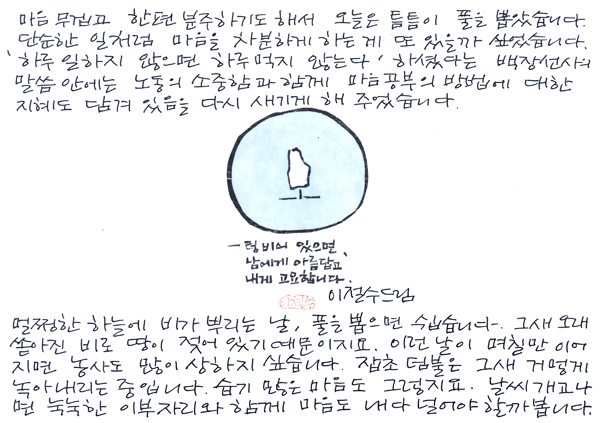 마음 무겁고 한편 분주하기도 해서 오늘은 틈틈이 풀을 뽑았습니다.
단순한 일처럼 마음을 차분하게 하는 게 또 있을까 싶었습니다.
'하루 일하지 않으면 하루 먹지 않는다' 하셨다는 백장선사의
말씀 안에는 노동의 소중함과 함께 마음공부의 방법에 대한
지혜도 담겨 있음을 다시 새기게 해 주었습니다.
- 텅 비어 있으면,
남에게 아름답고,
내게 고요합니다.
이철수드림
멀쩡한 하늘에 비가 뿌리는 날, 풀을 뽑으면 수입습니다. 그새 오래
쏟아진 비로 땅이 젖어 있기 때문이지요. 이런 날이 며칠만 이어
지면 농사도 많이 상하지 싶습니다. 잡초 덤불은 그새 거멓게
녹아내리는 중입니다. 습기 많은 마음도 그렇지요. 날씨 개고나
면 눅눅한 이부자리와 함께 마음도 내다 널어야 할까 봅니다.